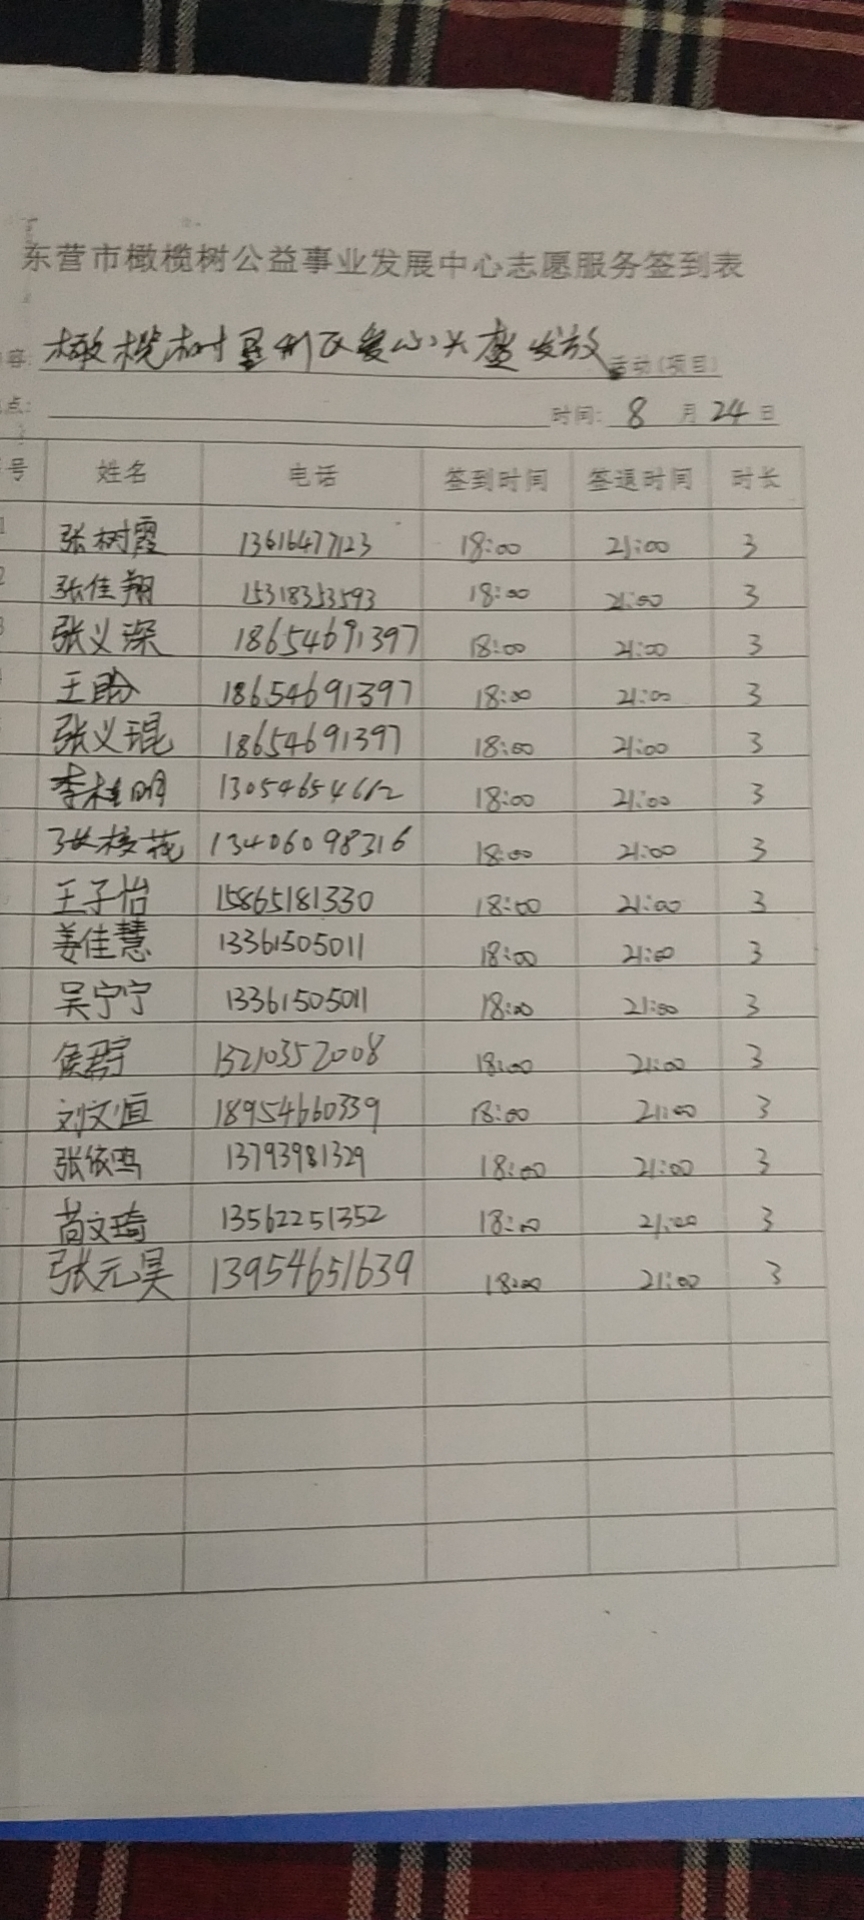 东营市橄榄树公益事业发展中心志愿服务签到表
容: 橄榄树垦利区爱心头盔发放 活动(项目)
点: 时间: 8 月 24 日
号 姓名 电话 签到时间 签退时间 时长
1 张树霞 13616477123 18:00 21:00 3
2 张佳翔 15318353593 18:00 21:00 3
3 张义深 18654691397 18:00 21:00 3
王盼 18654691397 18:00 21:00 3
张义琨 18654691397 18:00 21:00 3
李桂明 13054654612 18:00 21:00 3
13406098316 18:00 21:00 3
王子怡 15865181330 18:00 21:00 3
姜佳慧 13361505011 18:00 21:00 3
吴宁宁 13361505011 18:00 21:00 3
侯君宇 13210352008 18:00 21:00 3
刘文恒 18954660339 18:00 21:00 3
张依鸣 13793981329 18:00 21:00 3
苘文琦 13562251352 18:00 21:00 3
张元昊 13954651639 18:00 21:00 3